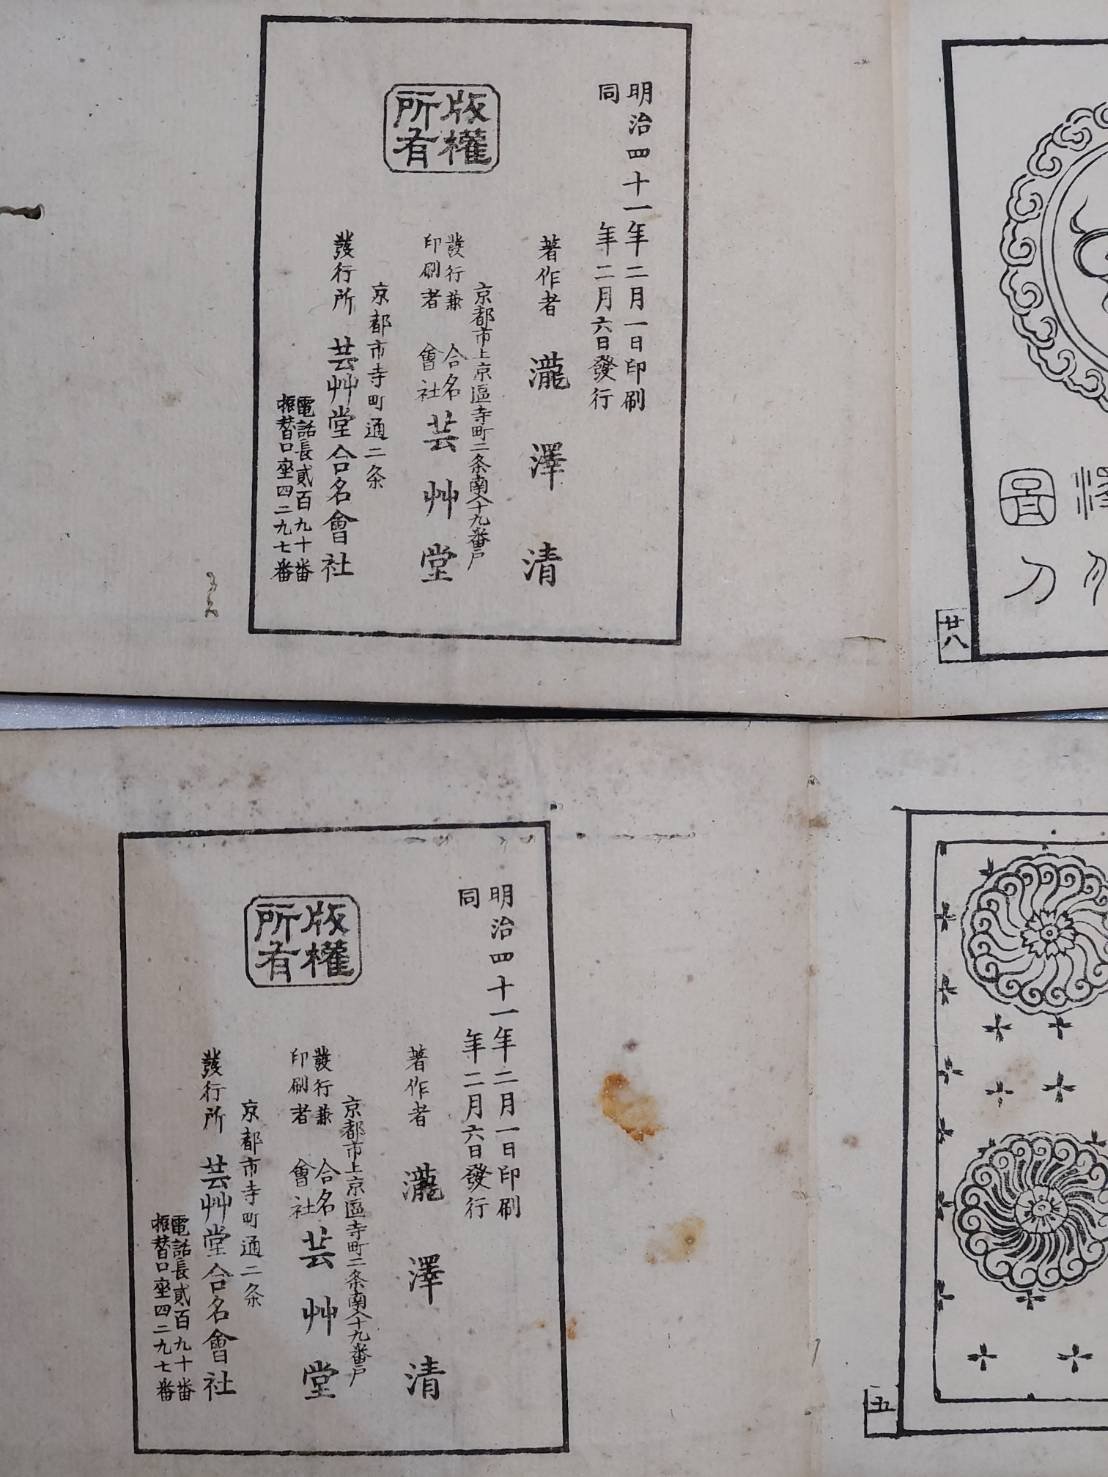 明治四十一年二月一日印刷
同年二月六日發行
版權
所有
著作者 瀧澤清
京都市上京區寺町二条南入十九番戸
發行兼
印刷者
合名
會社
芸艸堂
京都市寺町通二条
發行所 芸艸堂合名會社
電話長貳百九十番
振替口座四二九七番
刀
廿八
明治四十一年二月一日印刷
同年二月六日發行
版權
所有
著作者 瀧澤清
京都市上京區寺町二条南入十九番戸
發行兼
印刷者
合名
會社
芸艸堂
京都市寺町通二条
發行所 芸艸堂合名會社
電話長貳百九十番
振替口座四二九七番
五